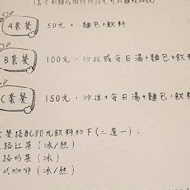 A套餐 50元, 麵包+飲料
B套餐 100元, 沙拉或每日湯+麵包+飲料
C套餐 150元, 沙拉+每日湯+麵包+飲料
套餐搭配50元飲料如下(三選一):
紅茶(冰/熱)
奶茶(冰/熱)
式咖啡(冰/熱)